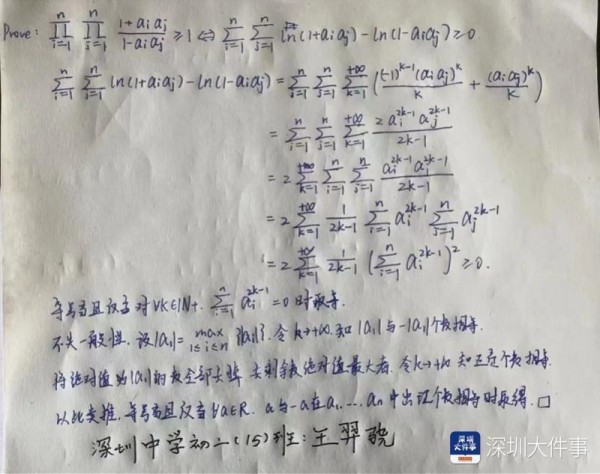 Prove: ∏_{i=1}^{n} ∏_{j=1}^{n} (1+a_i a_j)/(1-a_i a_j) ≥ 1 ⇔ ∑_{i=1}^{n} ∑_{j=1}^{n} ln(1+a_i a_j) - ln(1-a_i a_j) ≥ 0.
∑_{i=1}^{n} ∑_{j=1}^{n} ln(1+a_i a_j) - ln(1-a_i a_j) = ∑_{i=1}^{n} ∑_{j=1}^{n} ∑_{k=1}^{+∞} ( (-1)^{k-1}(a_i a_j)^k / k + (a_i a_j)^k / k )
= ∑_{i=1}^{n} ∑_{j=1}^{n} ∑_{k=1}^{+∞} 2 a_i^{2k-1} a_j^{2k-1} / (2k-1)
= 2 ∑_{k=1}^{+∞} ∑_{i=1}^{n} ∑_{j=1}^{n} a_i^{2k-1} a_j^{2k-1} / (2k-1)
= 2 ∑_{k=1}^{+∞} 1/(2k-1) ∑_{i=1}^{n} a_i^{2k-1} ∑_{j=1}^{n} a_j^{2k-1}
= 2 ∑_{k=1}^{+∞} 1/(2k-1) ( ∑_{i=1}^{n} a_i^{2k-1} )² ≥ 0.
等号当且仅当对∀k∈N+, ∑_{i=1}^{n} a_i^{2k-1} = 0 时取等.
不失一般性, 设|a_1| = max_{1≤i≤n} {|a_i|}. 令k→+∞. 知|a_1|与-|a_1|个数相等.
将绝对值为|a_1|的数全部去掉, 去剩余数绝对值最大者. 令k→+∞ 知正负个数相等.
以此类推, 等号当且仅当∀a∈R. a与-a在a_1, ..., a_n中出现个数相等时取得. □
深圳中学初二(15)班: 王羿骁
深圳大件事
深圳大件事